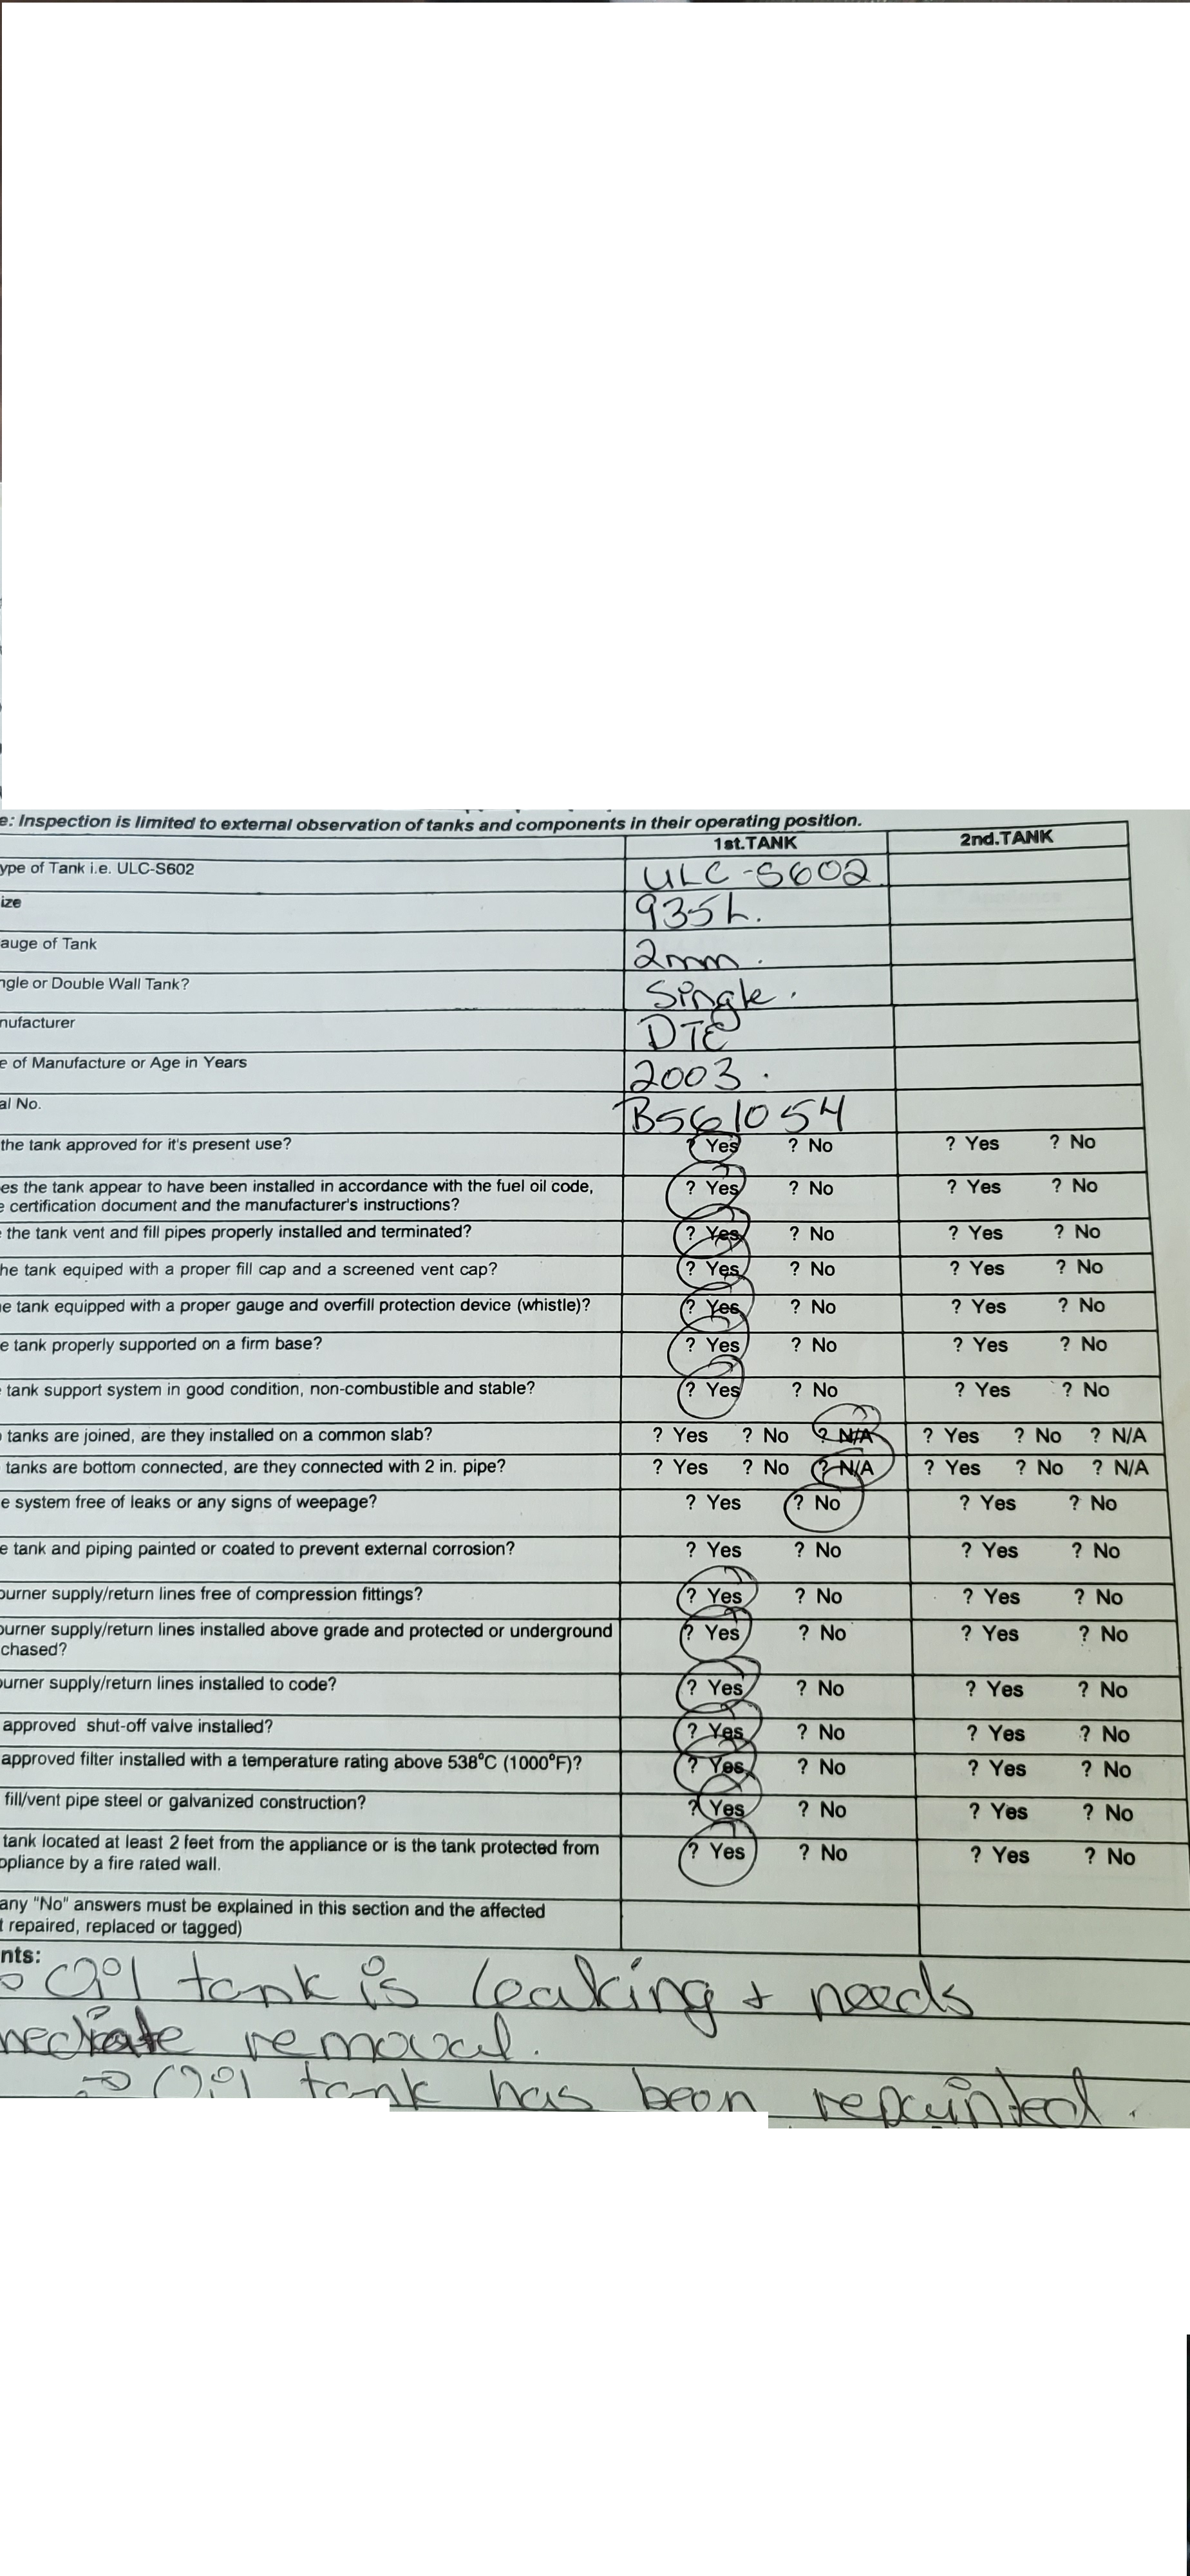 e: Inspection is limited to external observation of tanks and components in their operating position.
1st.TANK 2nd.TANK
ype of Tank i.e. ULC-S602 ULC-S602
ize 935L.
auge of Tank 2mm.
ngle or Double Wall Tank? Single.
nufacturer DTE
e of Manufacture or Age in Years 2003.
al No. B561054
the tank approved for it's present use? ? Yes ? No ? Yes ? No
es the tank appear to have been installed in accordance with the fuel oil code,
e certification document and the manufacturer's instructions? ? Yes ? No ? Yes ? No
the tank vent and fill pipes properly installed and terminated? ? Yes ? No ? Yes ? No
he tank equiped with a proper fill cap and a screened vent cap? ? Yes ? No ? Yes ? No
e tank equipped with a proper gauge and overfill protection device (whistle)? ? Yes ? No ? Yes ? No
e tank properly supported on a firm base? ? Yes ? No ? Yes ? No
tank support system in good condition, non-combustible and stable? ? Yes ? No ? Yes ? No
tanks are joined, are they installed on a common slab? ? Yes ? No ? N/A ? Yes ? No ? N/A
tanks are bottom connected, are they connected with 2 in. pipe? ? Yes ? No ? N/A ? Yes ? No ? N/A
e system free of leaks or any signs of weepage? ? Yes ? No ? Yes ? No
e tank and piping painted or coated to prevent external corrosion? ? Yes ? No ? Yes ? No
burner supply/return lines free of compression fittings? ? Yes ? No ? Yes ? No
burner supply/return lines installed above grade and protected or underground
chased? ? Yes ? No ? Yes ? No
urner supply/return lines installed to code? ? Yes ? No ? Yes ? No
approved shut-off valve installed? ? Yes ? No ? Yes ? No
approved filter installed with a temperature rating above 538°C (1000°F)? ? Yes ? No ? Yes ? No
fill/vent pipe steel or galvanized construction? ? Yes ? No ? Yes ? No
tank located at least 2 feet from the appliance or is the tank protected from
ppliance by a fire rated wall. ? Yes ? No ? Yes ? No
any "No" answers must be explained in this section and the affected
t repaired, replaced or tagged)
nts:
Oil tank is leaking + needs
mediate removal.
→ Oil tank has been repainted.